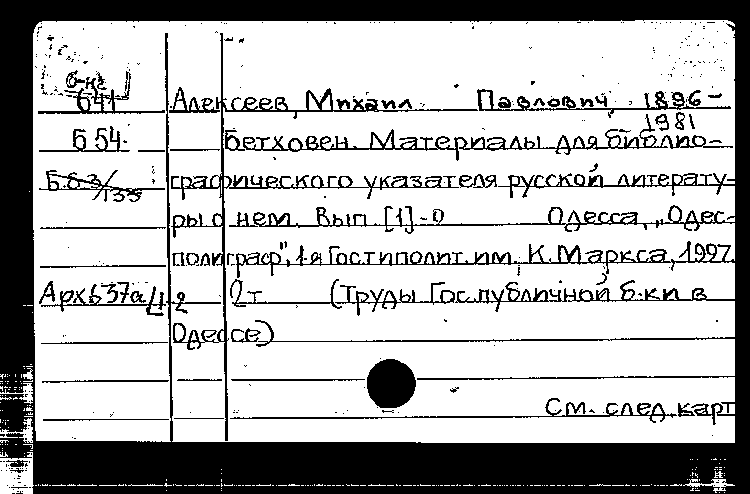 б-нг
641 Алексеев, Михаил Павлович, 1896-
1981
Б 54. Бетховен. Материалы для библио-
Б.б 3/133 графического указателя русской литерату-
ры о нем. Вып. [1]-0 Одесса, „Одес-
полиграф", 1-я Гостиполит.им. К. Маркса, 1927.
Арх637а/1,2 2т (Труды Гос.публичной б.ки в
Одессе)
См. след.карт